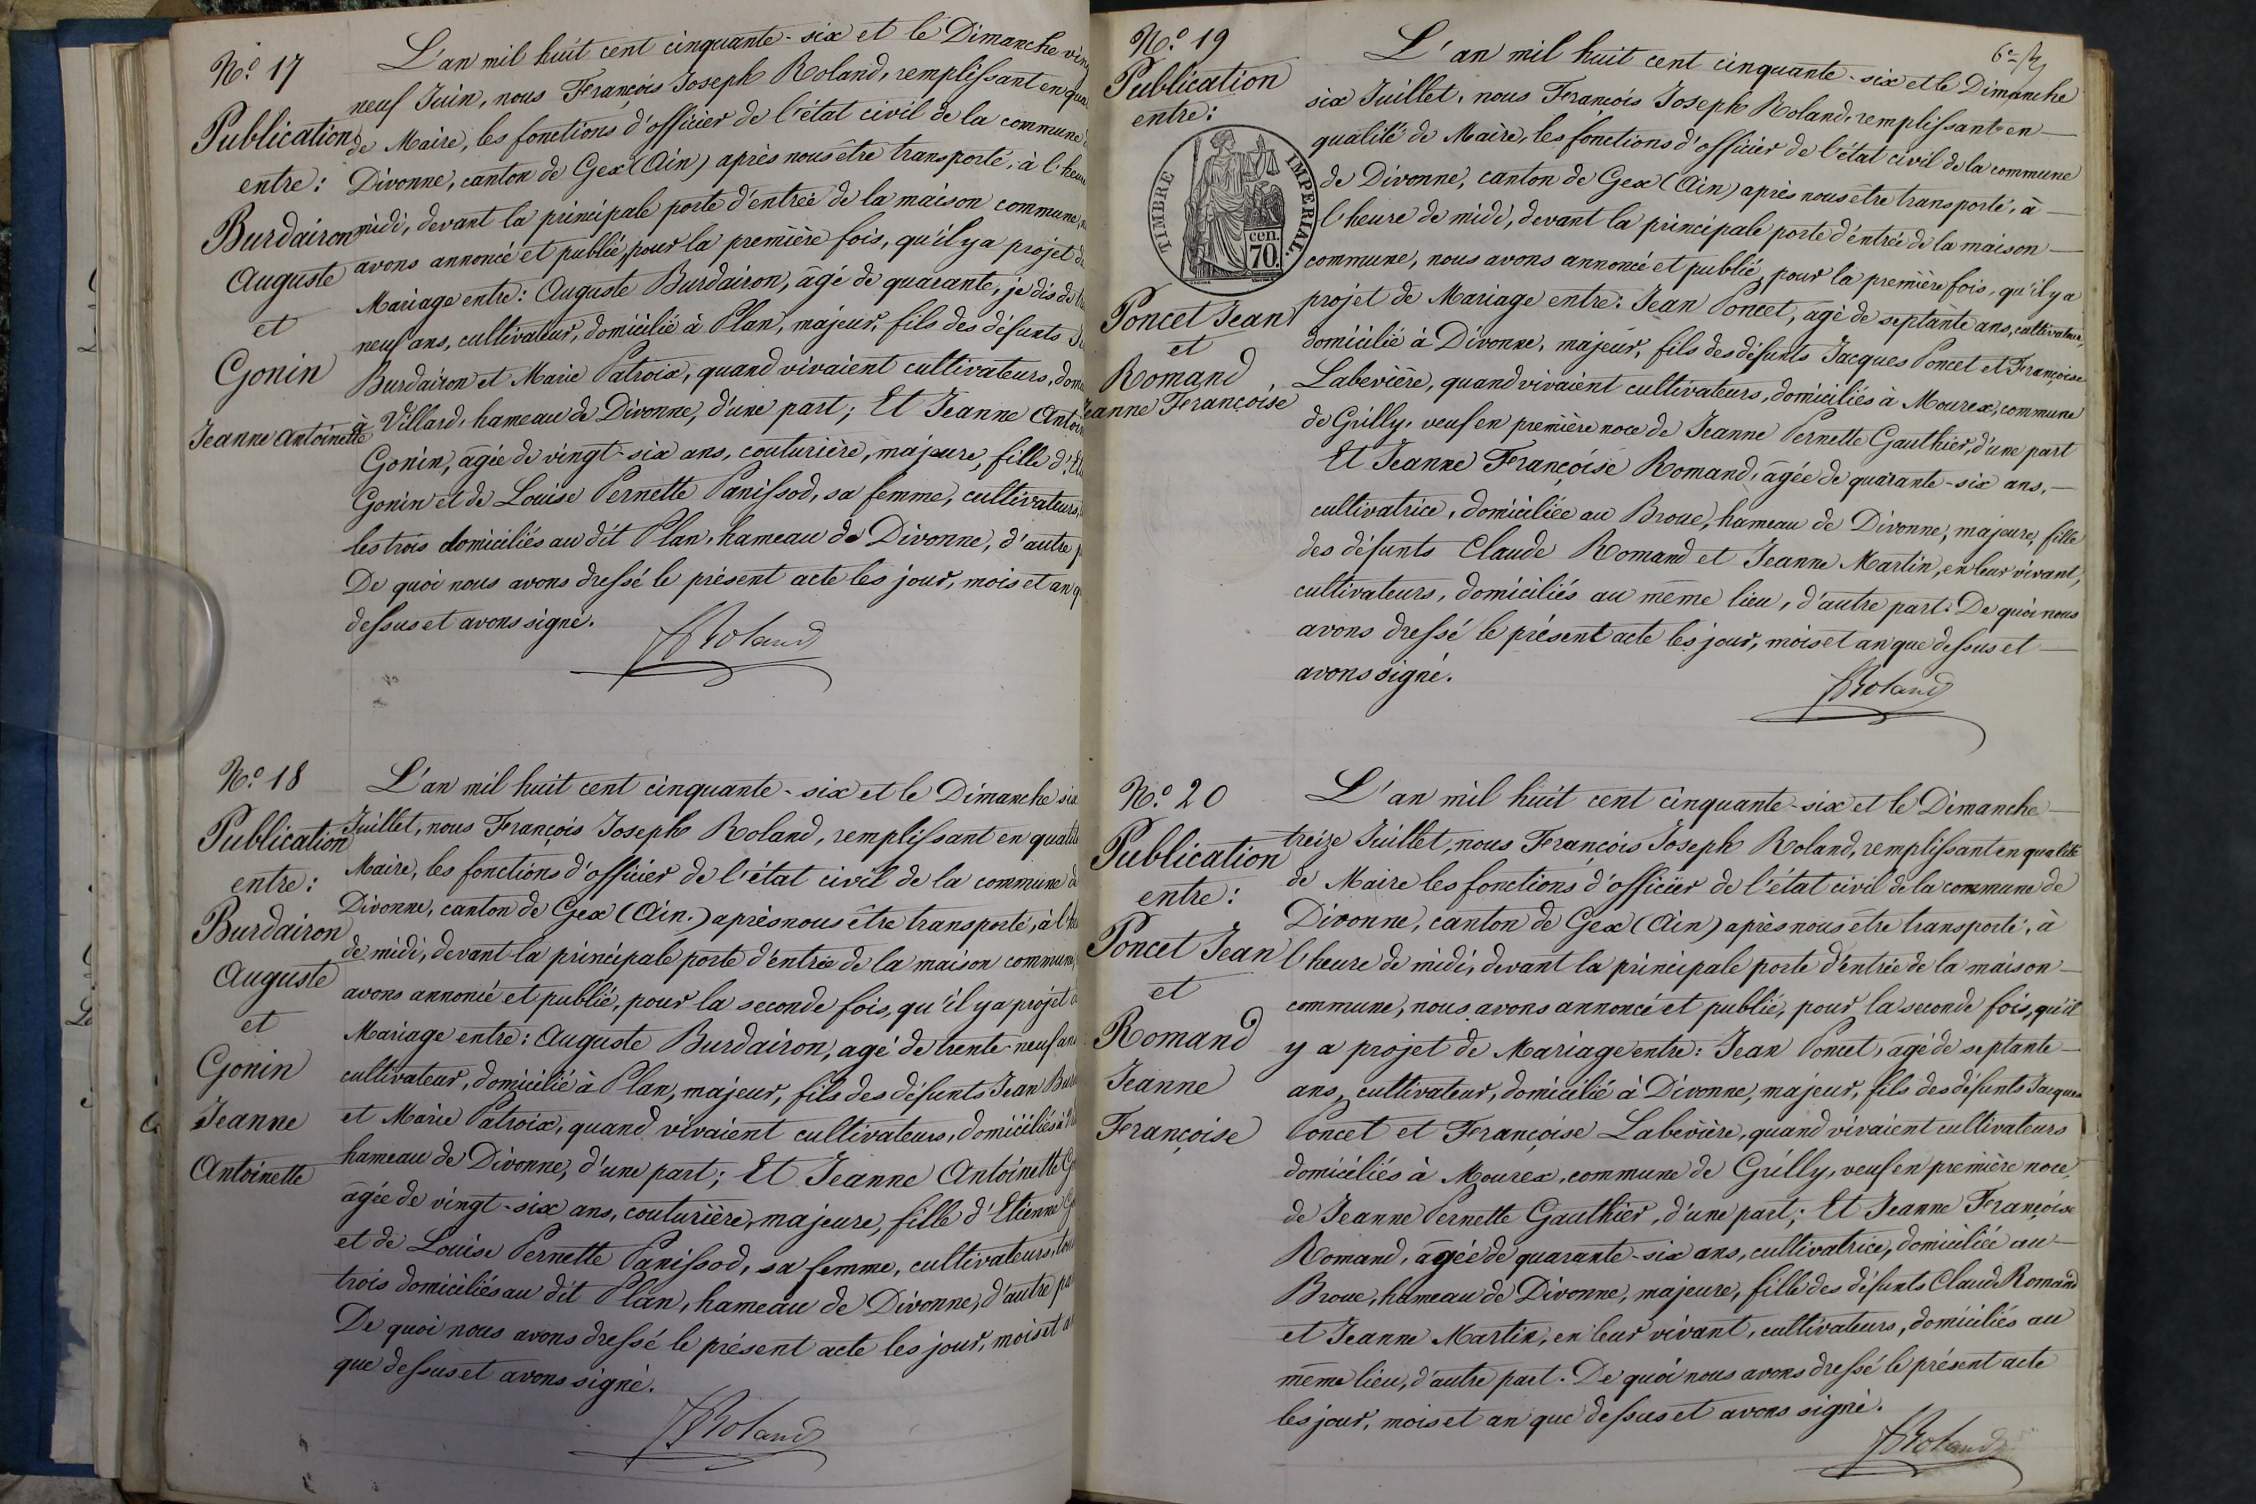 N.º 17
Publication
entre:
Burdairon
Auguste
et
Gonin
Jeanne Antoinette
L'an mil huit cent cinquante-six et le Dimanche
neuf Juin, nous François Joseph Roland, remplissant en
de Maire, les fonctions d'officier de l'état civil de la commune
Divonne, canton de Gex (Ain) après nous être transporté, à l'heure
midi, devant la principale porte d'entrée de la maison commune,
avons annoncé et publié, pour la première fois, qu'il y a projet de
Mariage entre: Auguste Burdairon, âgé de quarante, je dis de
neuf ans, cultivateur, domicilié à Plan, majeur, fils des défunts
Burdairon et Marie Patroix, quand vivaient cultivateurs,
à Villard, hameau de Divonne, d'une part; Et Jeanne
Gonin, âgée de vingt-six ans, couturière, majeure, fille
Gonin et de Louise Pernette Panissod, sa femme, cultivateurs,
les trois domiciliés au dit Plan, hameau de Divonne, d'autre
De quoi nous avons dressé le présent acte les jour, mois et an
dessus et avons signé.
FRoland
N.º 18
Publication
entre:
Burdairon
Auguste
et
Gonin
Jeanne
Antoinette
L'an mil huit cent cinquante-six et le Dimanche six
Juillet, nous François Joseph Roland, remplissant en
Maire, les fonctions d'officier de l'état civil de la commune
Divonne, canton de Gex (Ain.) après nous être transporté, à
de midi, devant la principale porte d'entrée de la maison commune,
avons annoncé et publié, pour la seconde fois, qu'il y a projet
Mariage entre: Auguste Burdairon, agé de trente-neuf ans
cultivateur, domicilié à Plan, majeur, fils des défunts Jean
et Marie Patroix, quand vivaient cultivateurs, domiciliés à
hameau de Divonne, d'une part; Et Jeanne Antoinette
âgée de vingt-six ans, couturière, majeure, fille d'Etienne
et de Louise Pernette Panissod, sa femme, cultivateurs,
trois domiciliés au dit Plan, hameau de Divonne, d'autre
De quoi nous avons dressé le présent acte les jour, mois et
que dessus et avons signé.
FRoland
6e
N.º 19
Publication
entre:
TIMBRE IMPERIAL.
cen.
70.
Poncet Jean
et
Romand,
Jeanne Françoise
L'an mil huit cent cinquante-six et le Dimanche
six Juillet, nous François Joseph Roland, remplissant en
qualité de Maire, les fonctions d'officier de l'état civil de la commune
de Divonne, canton de Gex (Ain) après nous être transporté, à
l'heure de midi, devant la principale porte d'entrée de la maison
commune, nous avons annoncé et publié, pour la première fois, qu'il y a
projet de Mariage entre: Jean Poncet, âgé de septante ans, cultivateur,
domicilié à Divonne, majeur, fils des défunts Jacques Poncet et Françoise
Labevière, quand vivaient cultivateurs, domiciliés à Mourex, commune
de Grilly, veuf en première noce de Jeanne Pernette Gauthier, d'une part
Et Jeanne Françoise Romand, âgée de quarante-six ans,
cultivatrice, domiciliée au Broue, hameau de Divonne, majeure, fille
des défunts Claude Romand et Jeanne Martin, en leur vivant,
cultivateurs, domiciliés au même lieu, d'autre part. De quoi nous
avons dressé le présent acte les jour, mois et an que dessus et
avons signé.
FRoland
N.º 20
Publication
entre:
Poncet Jean
et
Romand
Jeanne
Françoise
L'an mil huit cent cinquante-six et le Dimanche
treize Juillet, nous François Joseph Roland, remplissant en qualité
de Maire les fonctions d'officier de l'état civil de la commune de
Divonne, canton de Gex (Ain) après nous être transporté, à
l'heure de midi, devant la principale porte d'entrée de la maison
commune, nous avons annoncé et publié, pour la seconde fois, qu'il
y a projet de Mariage entre: Jean Poncet, âgé de septante
ans, cultivateur, domicilié à Divonne, majeur, fils des défunts Jacques
Poncet et Françoise Labevière, quand vivaient cultivateurs
domiciliés à Mourex, commune de Grilly, veuf en première noce,
de Jeanne Pernette Gauthier, d'une part; Et Jeanne Françoise
Romand, âgée de quarante-six ans, cultivatrice, domiciliée au
Broue, hameau de Divonne, majeure, fille des défunts Claude Romand
et Jeanne Martin, en leur vivant, cultivateurs, domiciliés au
même lieu, d'autre part. De quoi nous avons dressé le présent acte
les jour, mois et an que dessus et avons signé.
FRoland